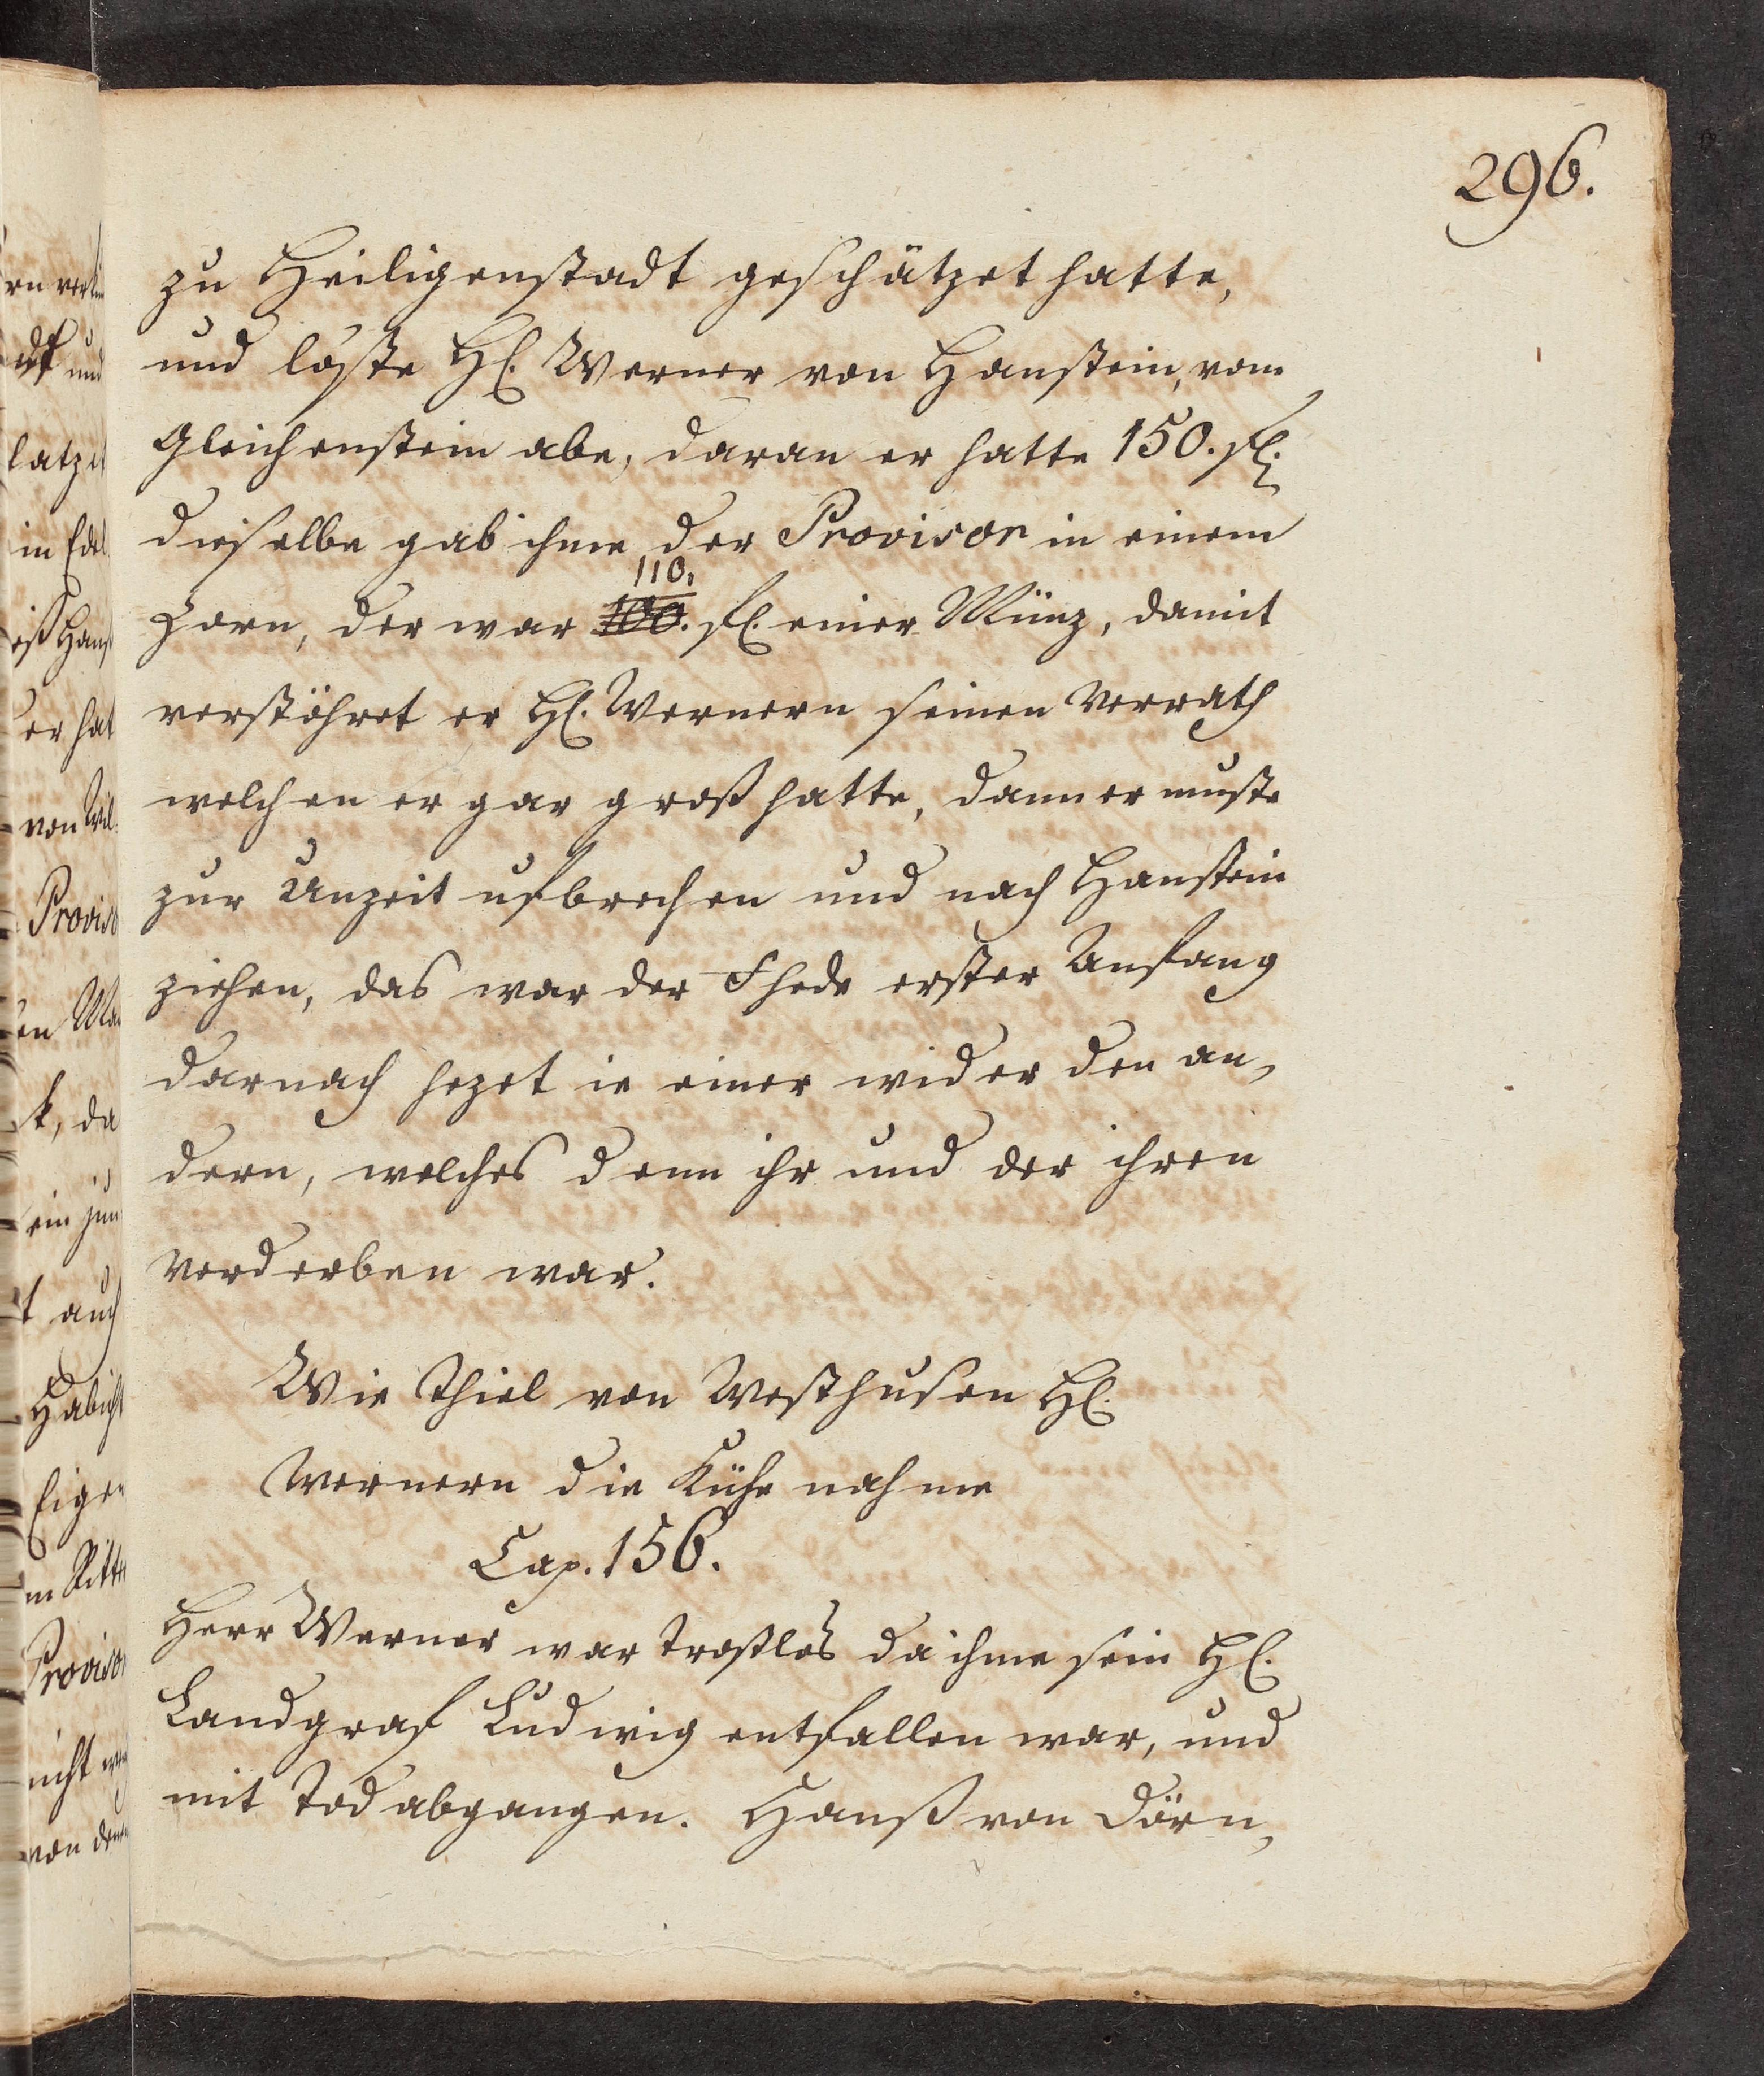 296.
zu Heiligenstadt geschätzet hatte,
und löste H. Werner von Hanstein, vom
Gleichenstein abe, daran er hatte 150. fl.
dieselbe gab ihme der Provisor in einem
110.
Zorn, der war 100. fl. einer Müntz, damit
verstöhret er H. Wernern seinen Verrath
welchen er gar groß hatte, dann er muste
zur Unzeit ufbrechen und nach Hanstein
ziehen, das war der Fhede erster Anfang
darnach hezet ie einer wider den an,
dern, welches denn ihr und der ihren
Verderben war.
Wie Thiel von Westhusen H.
Wernern die Kühe nahme
Cap. 156.
Herr Werner war trostlos da ihme sein H.
Landgraf Ludwig entfallen war, und
mit Tod abgangen. Hanß von Dörn,